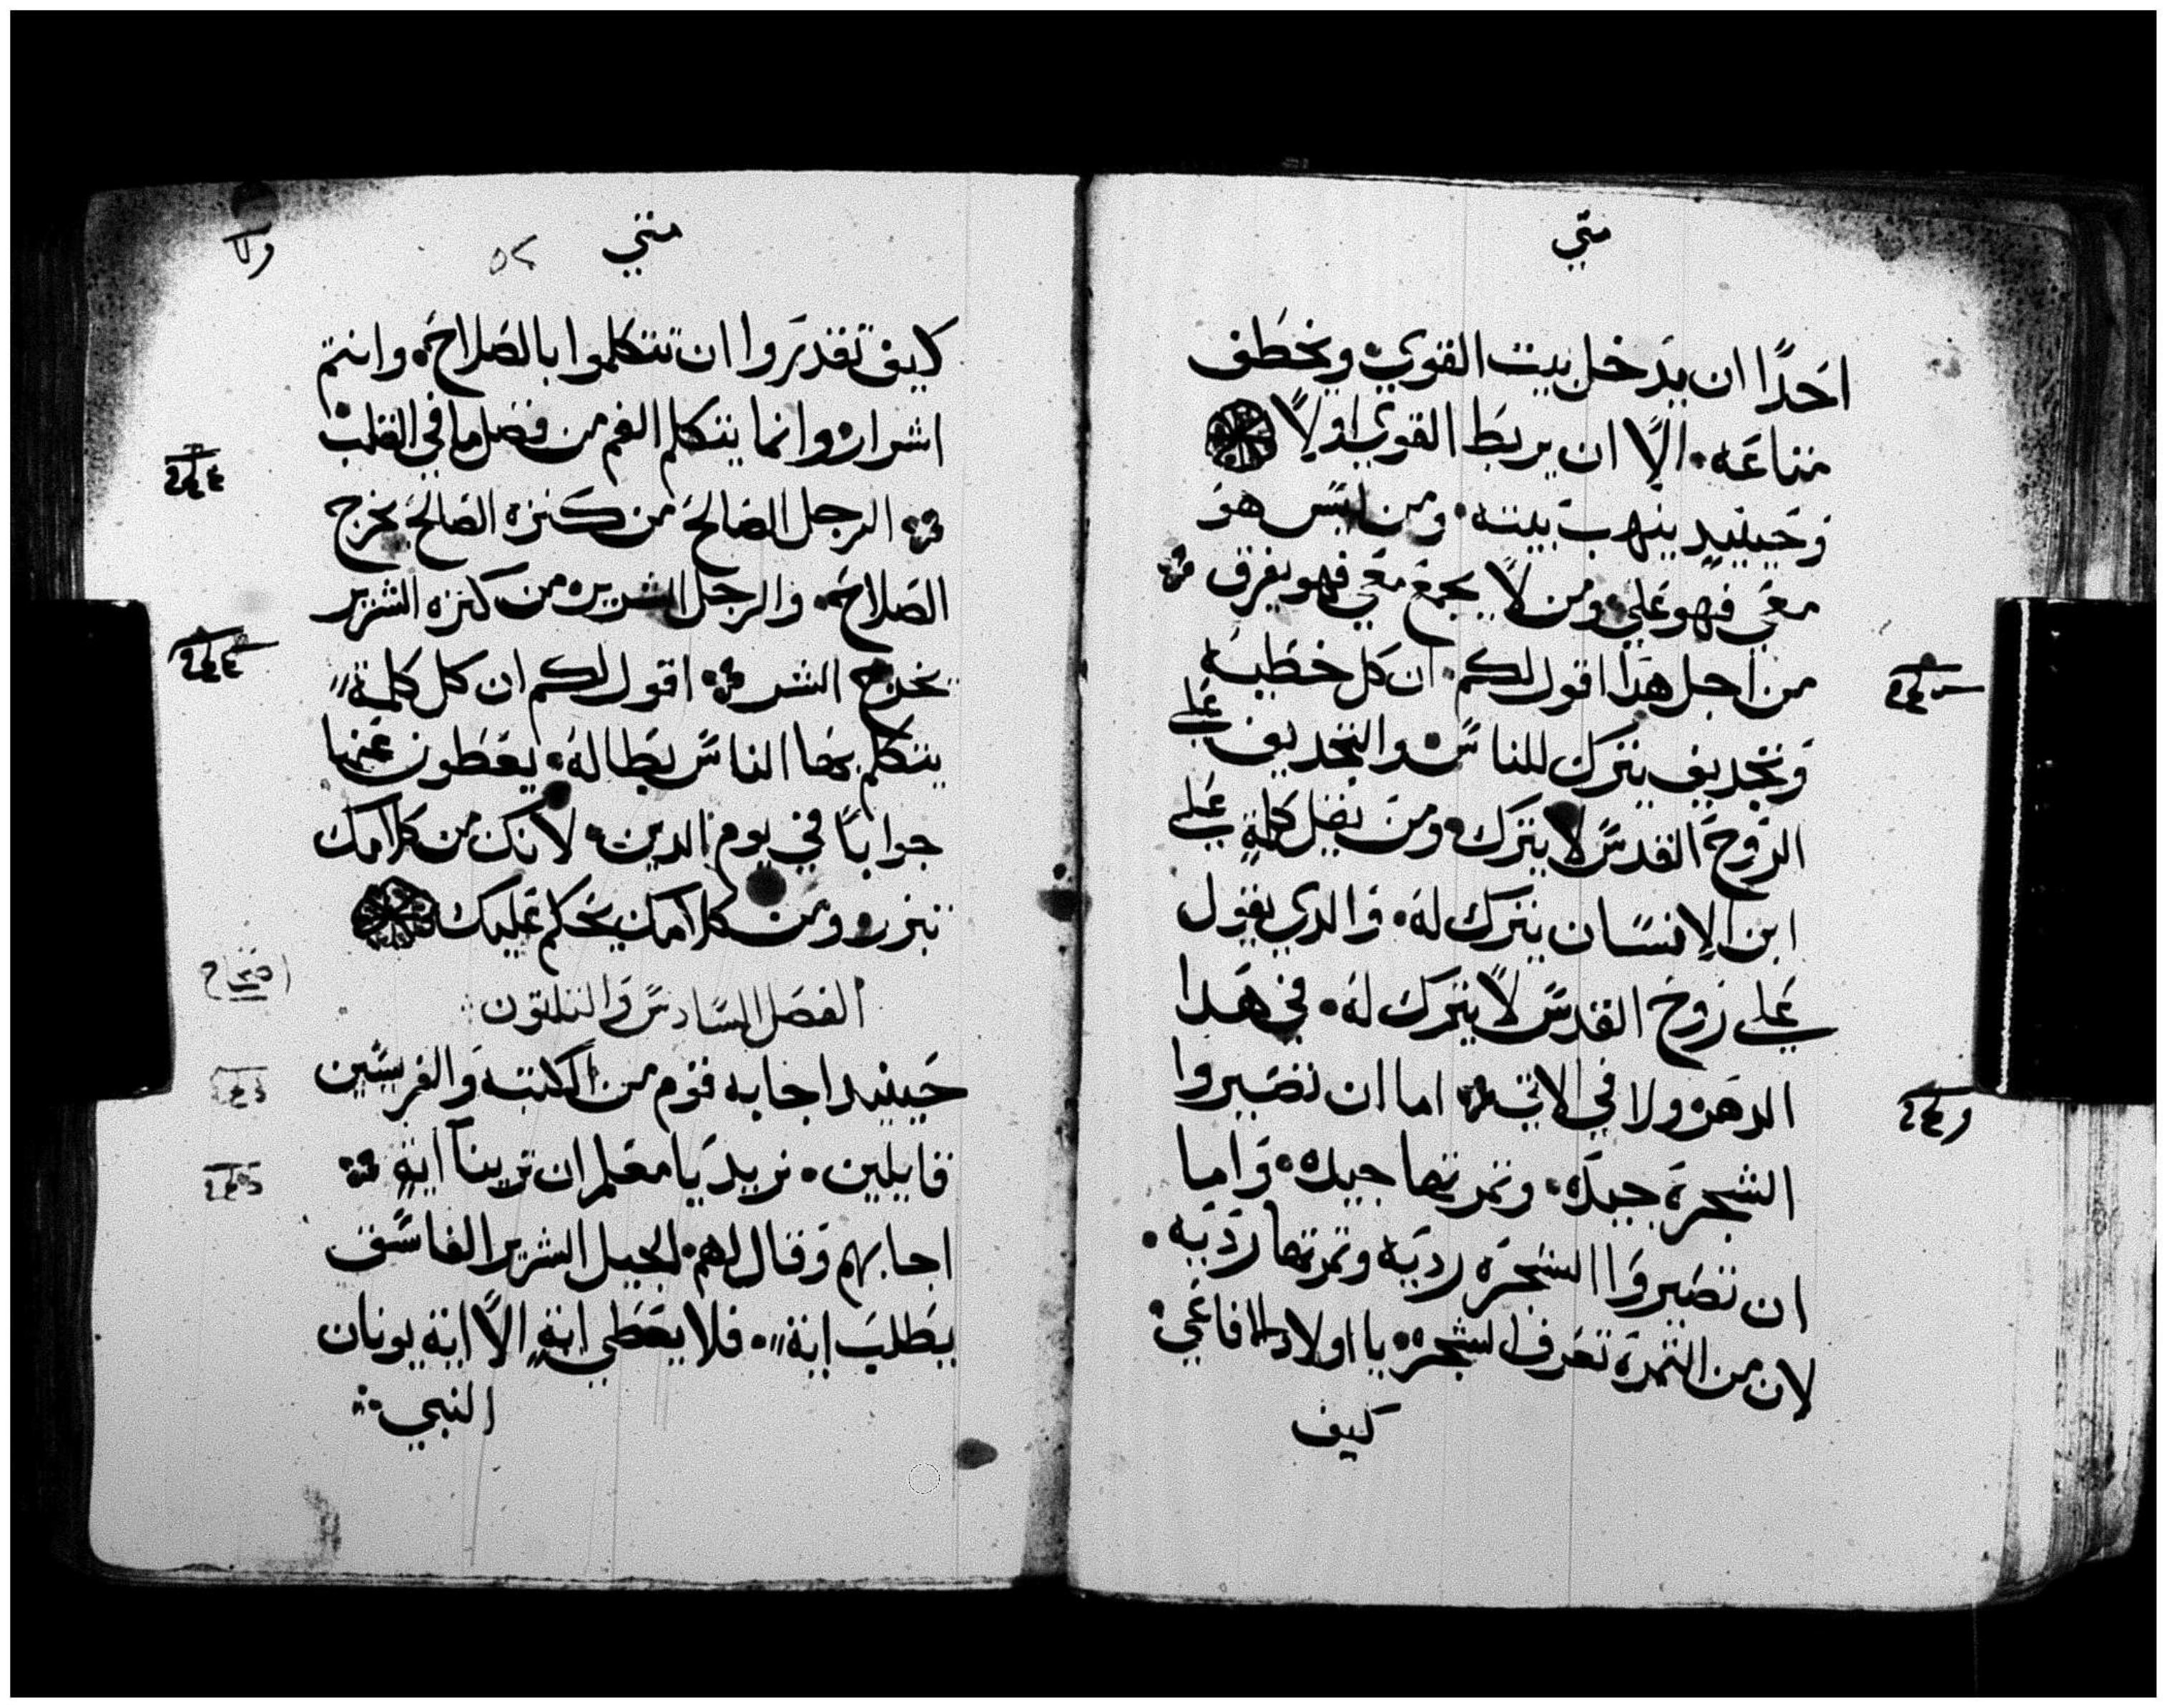 متي
احدًا ان يدخل بيت القوي ويخطف
متاعه الّا ان يربط القوي اولًا
وحينيد ينهب بيته ومن ليس هو
معي فهو علي ومن لا يجمع معي فهو يفرق
من اجل هدا اقول لكم ان كل خطيه
وتجديف يترك للناس والتجديف علي
الروح القدس لا يترك ومن يقل كلمة علي
ابن الانسان يترك له والدي يقول
علي روح القدس لا يترك له في هدا
الدهر ولا في الاتي اما ان تصيروا
الشجرة جيده وتمرتها جيده واما
ان تصيروا الشجره رديه وتمرتها رديه
لان من التمرة تعرف الشجره يا اولاد الافاعي
كيف
متي
كيف تقدروا ان تتكلموا بالصلاح وانتم
اشرار وانما يتكلم الفم من فضل ما في القلب
الرجل الصالح من كنزه الصالح يخرج
الصلاح والرجل الشرير من كنزه الشرير
يخرج الشر اقول لكم ان كل كلمة
يتكلم بها الناس بطاله يعطون عنها
جوابًا في يوم الدين لانك من كلامك
تبرر ومن كلامك يحكم عليك
الفصل السادس والتلتون
حينيد اجابه قوم من الكتبه والفريسين
قايلين نريد يا معلم ان ترينا اية
اجابهم وقال لهم الجيل الشرير الفاسق
يطلب اية فلا يعطي اية الّا اية يونان
النبي